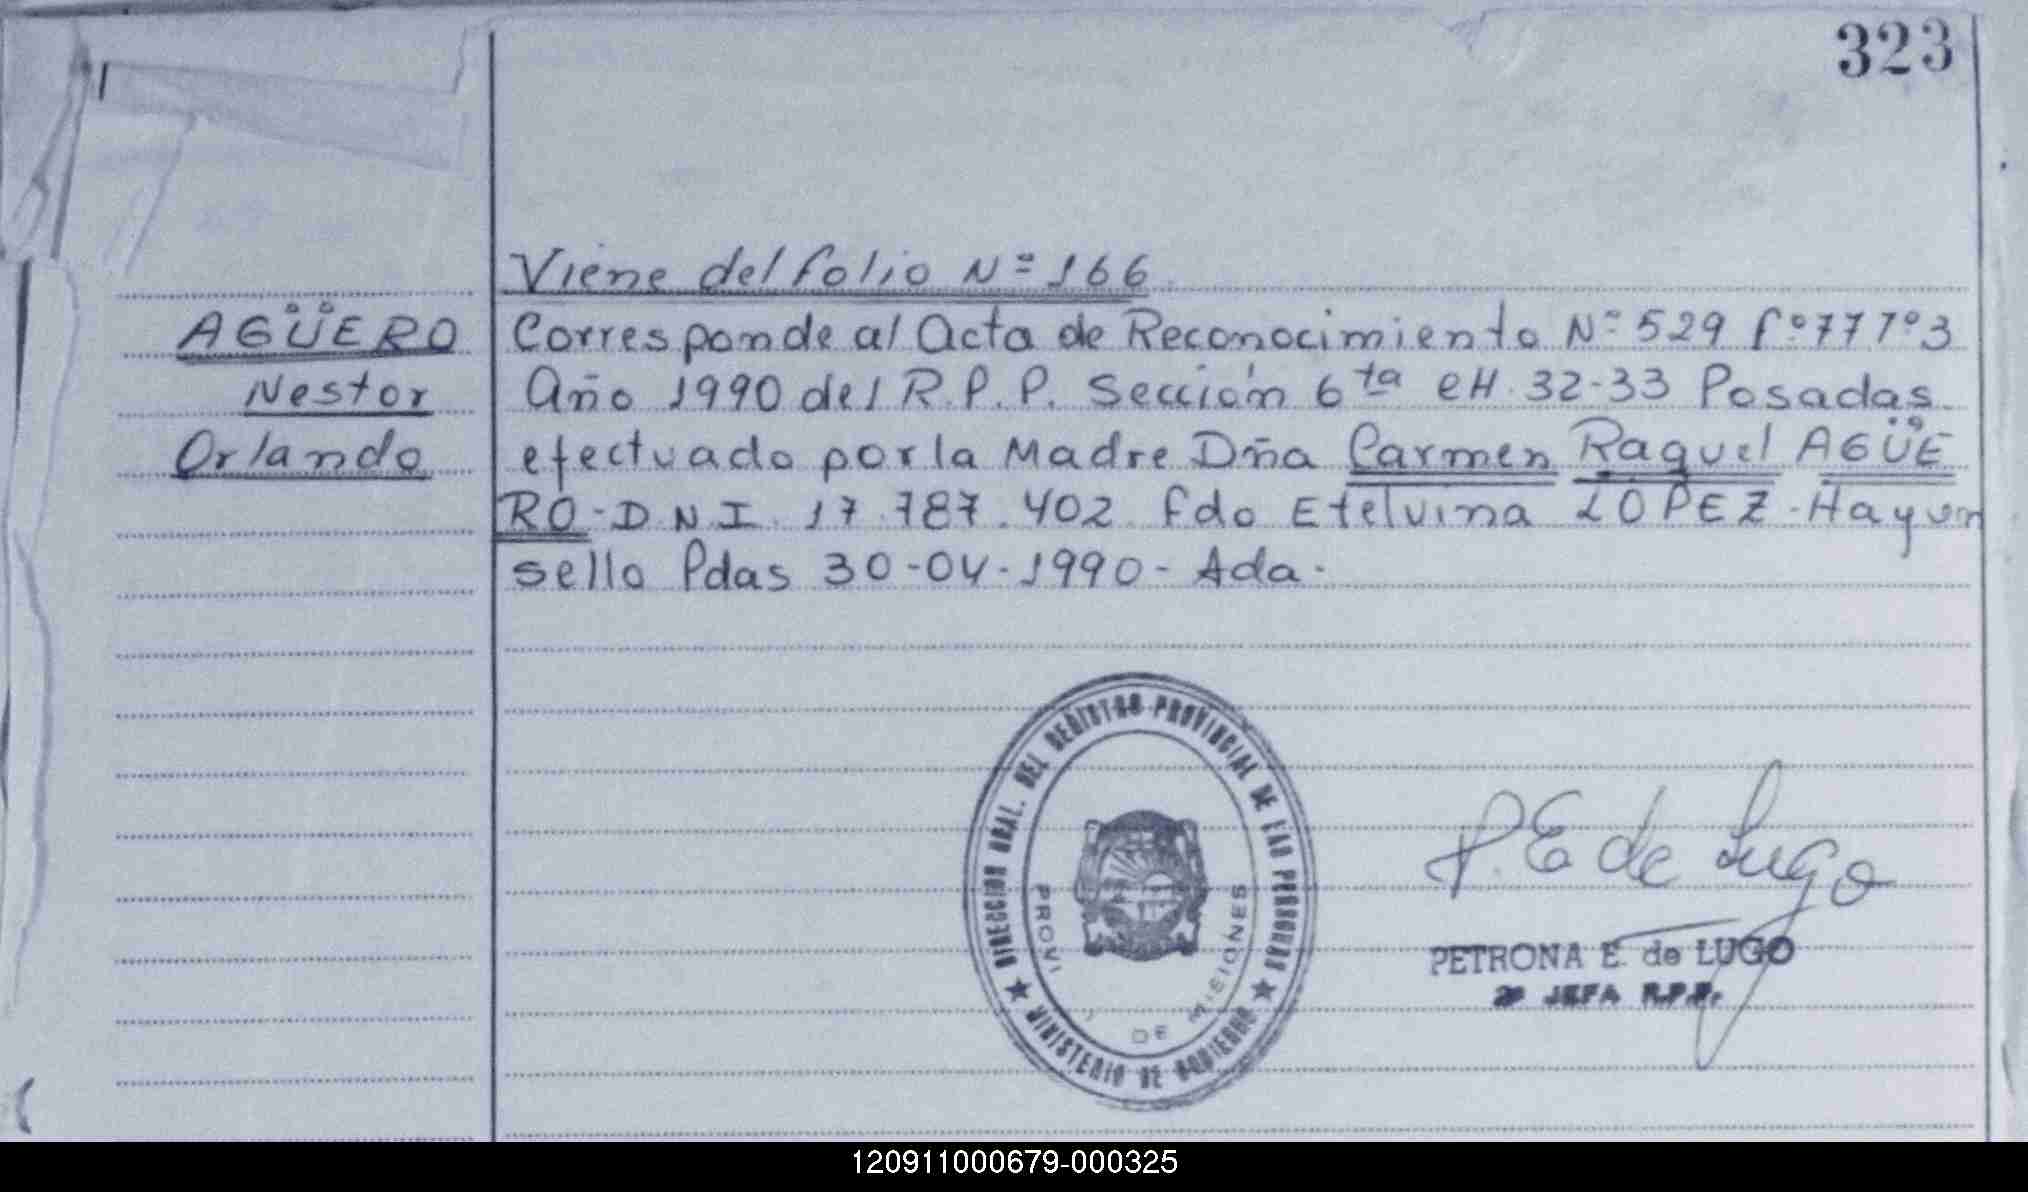 323
Viene del folio Nº 166
AGÜERO
Nestor
Orlando
Corresponde al Acta de Reconocimiento Nº 529 fº 77 Tº 3
Año 1990 del R.P.P. Sección 6ta CH. 32-33 Posadas.
efectuado por la Madre Dña Carmen Raquel AGÜE
RO - D N. I. 17.787.402 fdo Etelvina LOPEZ - Hay un
sello Pdas 30-04-1990 - Ada.
DIRECCION GRAL. DEL REGISTRO PROVINCIAL DE LAS PERSONAS
MINISTERIO DE GOBIERNO
DE MISIONES
P. E de Lugo
PETRONA E. de LUGO
JEFA R.P.P.
120911000679-000325